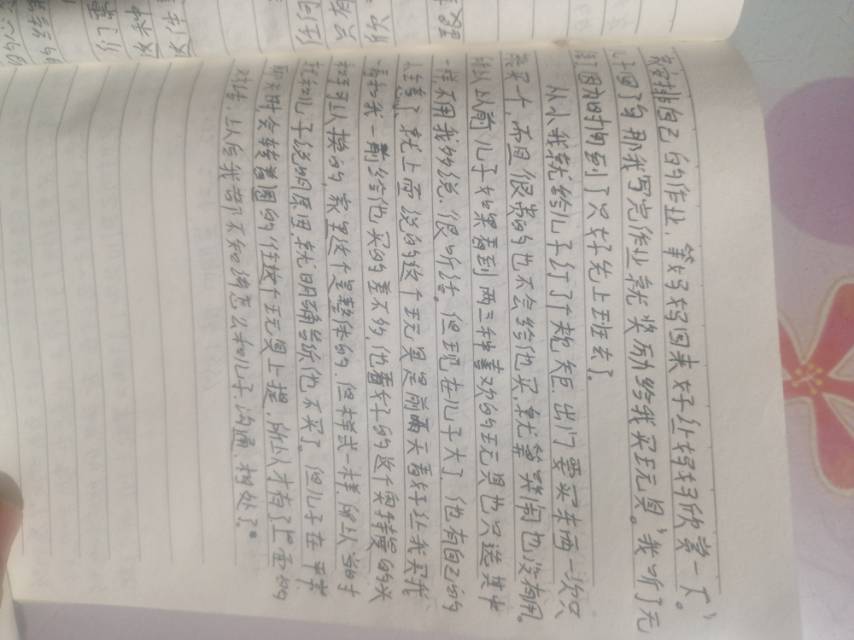 安排自己的作业，等妈妈回来好让妈妈欣赏一下。”
那我写完作业就奖励给我买玩具。”我听了无
因为时间到了只好先上班去了。
从小我就给儿子订了个规矩，出门要买东西一次只
买一个，而且很贵的也不会给他买，就算哭闹也没有用。
所以以前儿子如果看到两三种喜欢的玩具也只选其中
一样不用我多说，很听话。但现在儿子大了，他有自己的
了，就上面说的这个玩具是前两天看好让我买我
一看和我一前给他买的差不多，他看好的这个
可以换的，家里这个是整体的，但样式一样，所以当时
就和儿子说明原因，就明确告诉他不买了。但儿子在平常
聊天时会转着圈的往这个玩具上提，所以才有了上面的
对话，以后我都不知该怎么和儿子沟通、相处了。